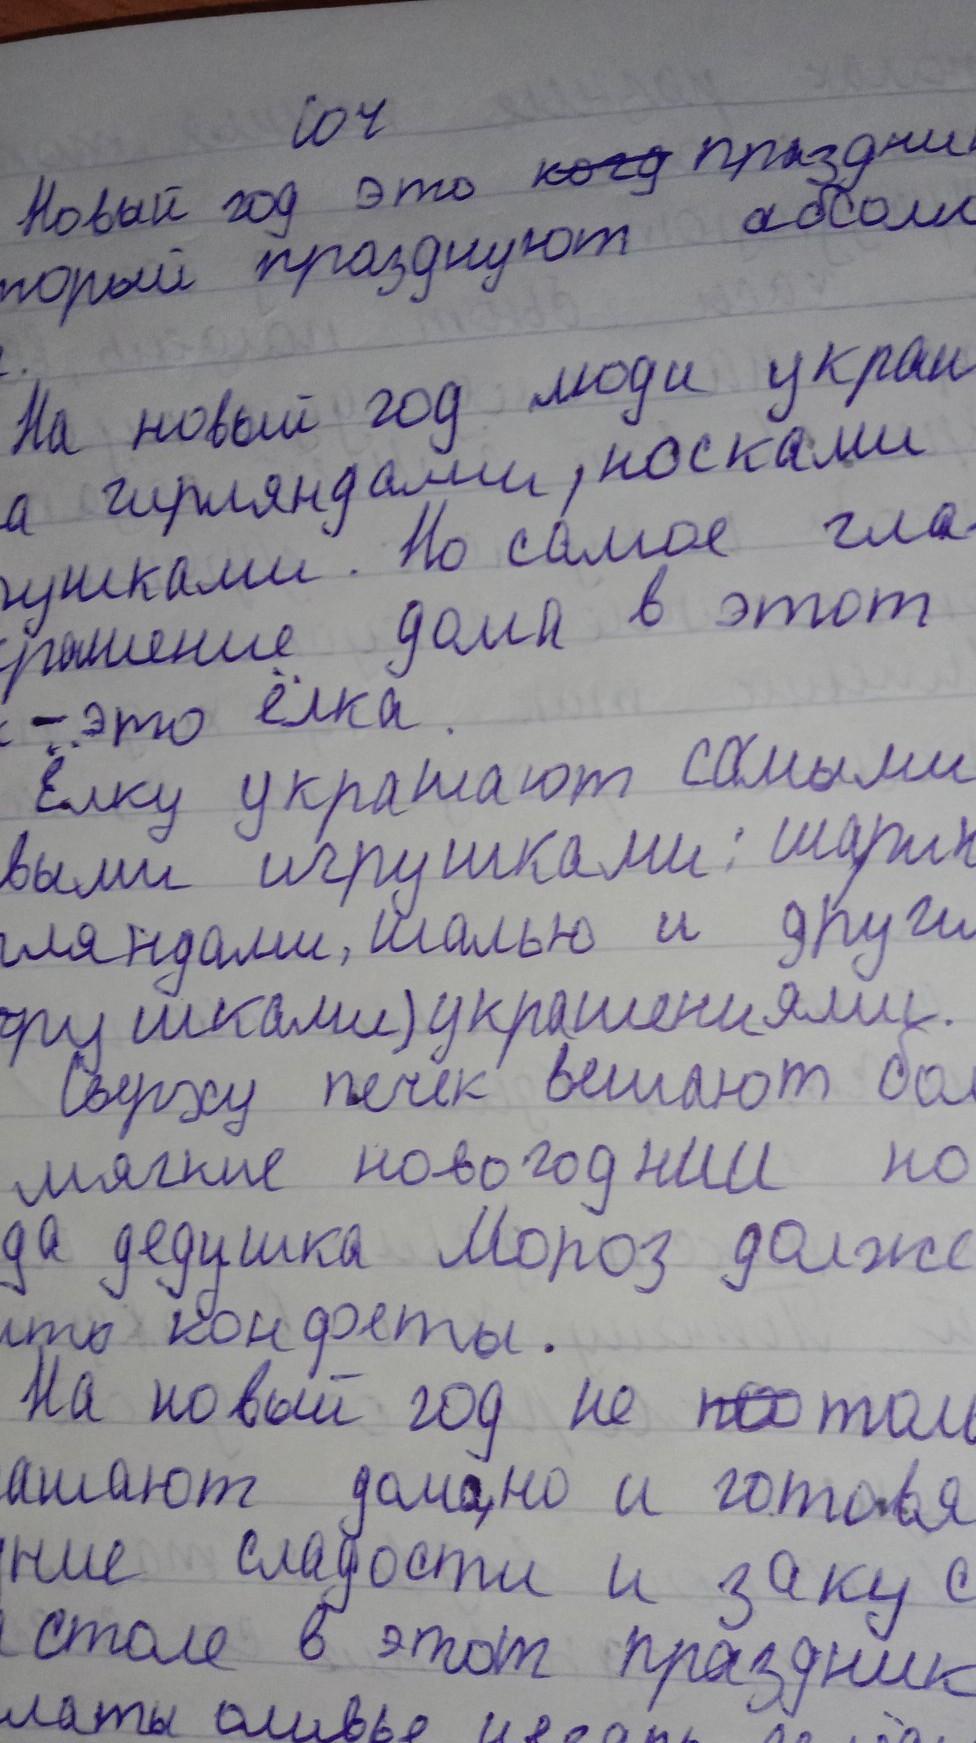 Соч
Новый год это когд праздни
торый празднуют абсолю
.
На новый год люди украш
а гирляндами, носками
рушками. Но самое гла-
крашение дома в этот
к - это ёлка.
Ёлку украшают самыми
выми игрушками: шарик
ляндами, шалью и други
грушками) украшениями.
Сверху печек вешают бол
мягкие новогоднии но
да дедушка Мороз долже
ить конфеты.
На новый год не толь
ашают дома, но и готовя
дние сладости и закус
столе в этот праздник
латы оливье